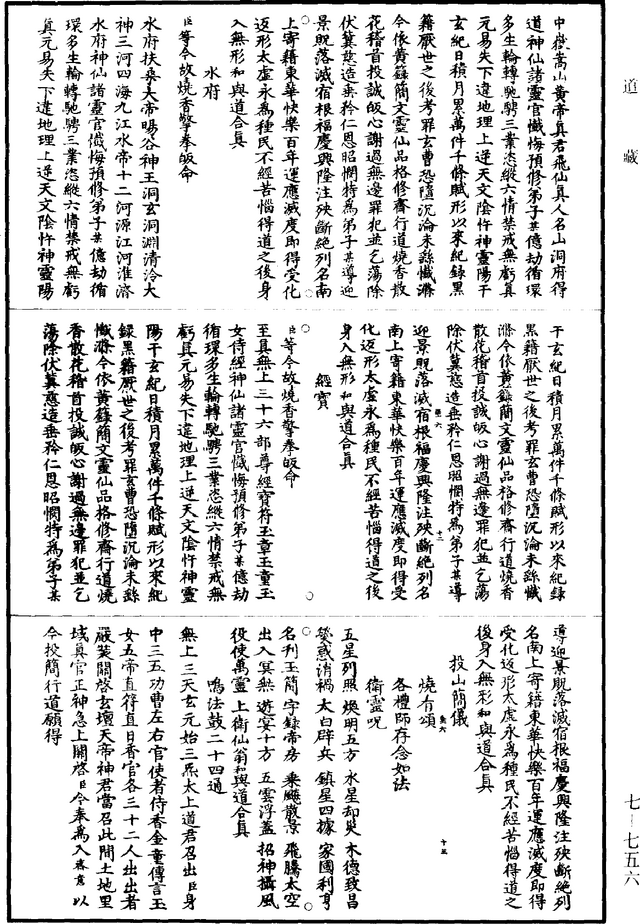 道藏
七－七五六
中嶽嵩山黃帝真君飛仙真人名山洞府得
道神仙諸靈官懺悔預修弟子某億劫循環
多生輪轉馳騁三業恣縱六情禁戒無虧真
元易失下違地理上逆天文陰忤神靈陽干
玄紀日積月累萬件千條賦形以來紀錄黑
籍厭世之後考罪玄曹恐墮沉淪未繇懺滌
今依黃籙簡文靈仙品格修齋行道燒香散
花稽首投誠皈心謝過無邊罪犯並乞蕩除
伏冀慈造垂矜仁恩昭憫特為弟子某導迎
景貺落滅宿根福慶興隆注殃斷絕列名南
上寄籍東華快樂百年運應滅度即得受化
返形太虛永為種民不經苦惱得道之後身
入無形和與道合真
臣等今故燒香擎拳皈命
水府
水府扶桑大帝暘谷神王洞玄洞淵清泠大
神三河四海九江水帝十二河源江河淮濟
水府神仙諸靈官懺悔預修弟子某億劫循
環多生輪轉馳騁三業恣縱六情禁戒無虧
真元易失下違地理上逆天文陰忤神靈陽
干玄紀日積月累萬件千條賦形以來紀錄
黑籍厭世之後考罪玄曹恐墮沉淪未繇懺
滌今依黃籙簡文靈仙品格修齋行道燒香
散花稽首投誠皈心謝過無邊罪犯並乞蕩
除伏冀慈造垂矜仁恩昭憫特為弟子某導
迎景貺落滅宿根福慶興隆注殃斷絕列名
南上寄籍東華快樂百年運應滅度即得受
化返形太虛永為種民不經苦惱得道之後
身入無形和與道合真
經寶
臣等今故燒香擎拳皈命
至真無上三十六部尊經寶符玉章玉童玉
女侍經神仙諸靈官懺悔預修弟子某億劫
循環多生輪轉馳騁三業恣縱六情禁戒無
虧真元易失下違地理上逆天文陰忤神靈
陽干玄紀日積月累萬件千條賦形以來紀
錄黑籍厭世之後考罪玄曹恐墮沉淪未繇
懺滌今依黃籙簡文靈仙品格修齋行道燒
香散花稽首投誠皈心謝過無邊罪犯並乞
蕩除伏冀慈造垂矜仁恩昭憫特為弟子某
導迎景貺落滅宿根福慶興隆注殃斷絕列
名南上寄籍東華快樂百年運應滅度即得
受化返形太虛永為種民不經苦惱得道之
後身入無形和與道合真
投山簡儀
燒香頌
各禮師存念如法
衛靈呪
五星列照 煥明五方 水星却災 木德致昌
熒惑消禍 太白辟兵 鎮星四據 家國利亨
名刊玉簡 字錄帝房 乘飈散景 飛騰太空
出入冥無 遊宴十方 五雲浮蓋 招神攝風
役使萬靈 上衛仙翁和與道合真
鳴法鼓二十四通
無上三天玄元始三炁太上道君召出臣身
中三五功曹左右官使者侍香金童傳言玉
女五帝直符直日香官各三十二人出出者
嚴裝關啓玄壇天帝神君當召此間土地里
域真官正神急上關啓臣今奉為入意以
今投簡行道願得